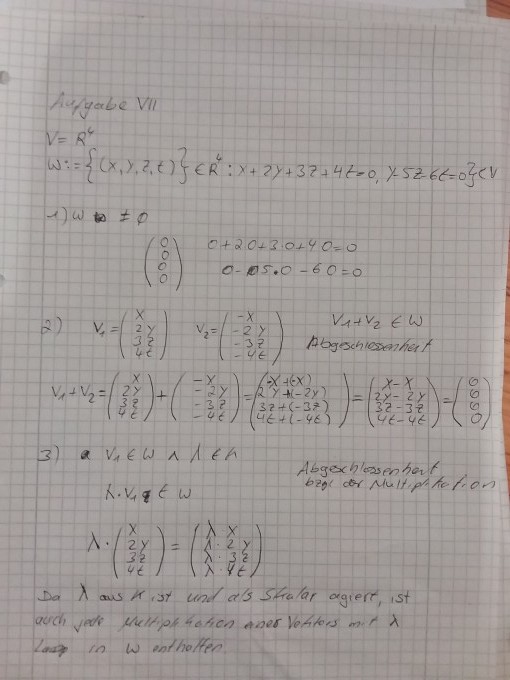 Aufgabe VII
V = R⁴
W := {(x, y, z, t)} ∈ R⁴ : x + 2y + 3z + 4t = 0, y - 5z - 6t = 0} ⊂ V
1) W ≠ 0
(0 0 0 0) 0 + 2·0 + 3·0 + 4·0 = 0
0 - 5·0 - 6·0 = 0
2) V₁ = (x 2y 3z 4t) V₂ = (-x -2y -3z -4t) V₁ + V₂ ∈ W
Abgeschlossenheit
V₁ + V₂ = (x 2y 3z 4t) + (-x -2y -3z -4t) = (x + (-x) 2y + (-2y) 3z + (-3z) 4t + (-4t)) = (x - x 2y - 2y 3z - 3z 4t - 4t) = (0 0 0 0)
3) V₁ ∈ W ∧ λ ∈ K
Abgeschlossenheit
bzgl der Multiplikation
λ·V₁ ∈ W
λ · (x 2y 3z 4t) = (λ·x λ·2y λ·3z λ·4t)
Da λ aus K ist und als Skalar agiert, ist
auch jede Multiplikation eines Vektors mit λ
in W enthalten.